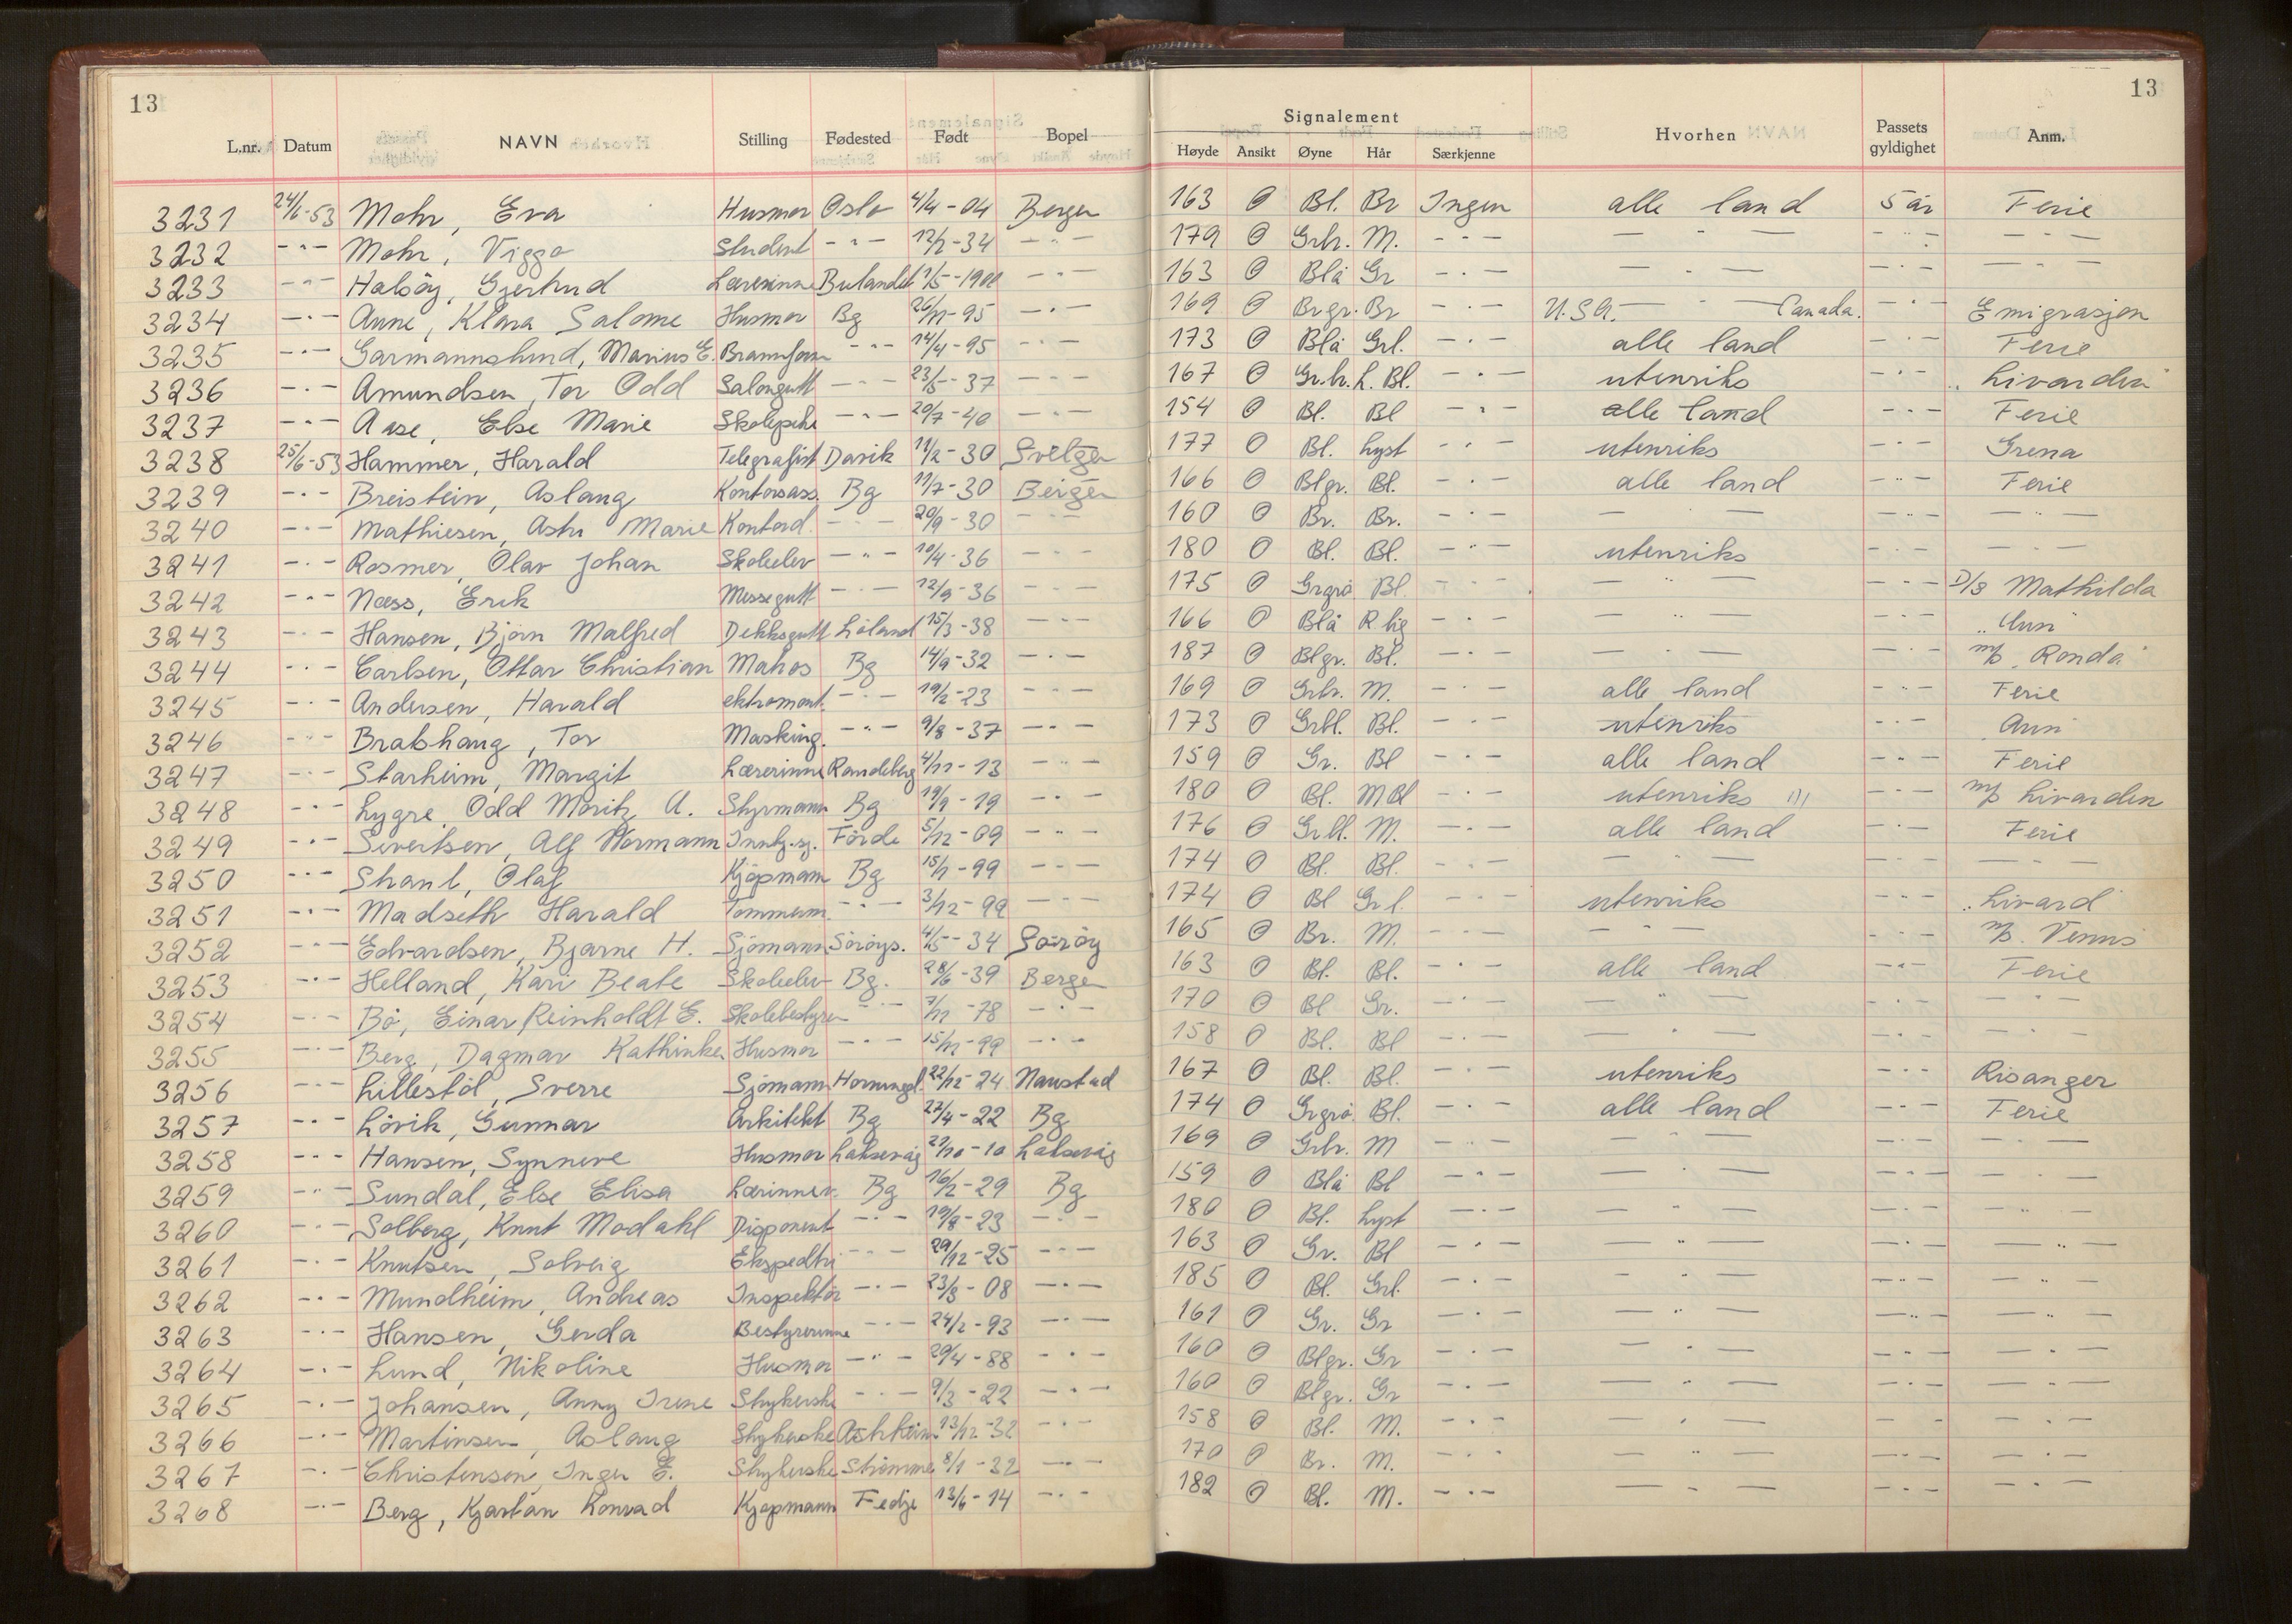 13 13
Signalement
L.nr. Datum NAVN Stilling Fødested Født Bopel Høyde Ansikt Øyne Hår Særkjenne Hvorhen Passets gyldighet Anm.
3231 24/6-53 Mohr, Eva Husmor Oslo 4/4-04 Bergen 163 O Bl. Br Ingen alle land 5 år Ferie
3232 -"- Mohr, Viggo Student -"- 12/2-34 -"- 179 O Grbr. M. -"- -"- -"- -"-
3233 -"- Halsöy, Gjertrud Lærerinne Bulandet 1/5-1900 -"- 163 O Blå Gr -"- -"- -"- -"-
3234 -"- Anne, Klara Salome Husmor Bg 26/11-95 -"- 169 O Brgr. Br -"- U.S.A. -"- Canada. -"- Emigrasjon
3235 -"- Garmannslund, Marius E. Brannform -"- 14/4-95 -"- 173 O Blå Grl. -"- alle land -"- Ferie
3236 -"- Amundsen, Tor Odd Salongutt -"- 23/5-37 -"- 167 O Gr.br. L. Bl. -"- utenriks -"- "Livarden"
3237 -"- Aase, Else Marie Skolepike -"- 20/7-40 -"- 154 O Bl. Bl -"- alle land -"- Ferie
3238 25/6-53 Hammer, Harald Telegrafist Davik 11/2-30 Svelgen 177 O Bl. Lyst -"- utenriks -"- Grena
3239 -"- Breistein, Aslaug Kontorass. Bg 11/7-30 Bergen 166 O Blgr. Bl. -"- alle land -"- Ferie
3240 -"- Mathiesen, Astri Marie Kontord. -"- 20/9-30 -"- 160 O Br. Br. -"- -"- -"- -"-
3241 -"- Rosmer, Olav Johan Skoleelev -"- 10/4-36 -"- 180 O Bl. Bl. -"- utenriks -"- -"-
3242 -"- Næss, Erik Messegutt -"- 12/9-36 -"- 175 O Grgrå Bl. -"- -"- -"- D/S Mathilda
3243 -"- Hansen, Björn Malfred Dekksgutt Löland 15/3-38 -"- 166 O Blå R lig -"- -"- -"-
3244 -"- Carlsen, Ottar Christian Matros Bg 14/9-32 -"- 187 O Blgr. Bl. -"- -"- -"- m/s "Ronda"
3245 -"- Andersen, Harald ektromont. -"- 19/2-23 -"- 169 O Grbr. M. -"- alle land -"- Ferie
3246 -"- Brakhaug, Tor Masking. -"- 9/8-37 -"- 173 O Grbl. Bl. -"- utenriks -"-
3247 -"- Starheim, Margit Lærerinne Randeberg 4/11-13 -"- 159 O Gr. Bl -"- alle land -"- Ferie
3248 -"- Lygre, Odd Moritz A. Styrmann Bg 19/9-19 -"- 180 O Bl. MBl -"- utenriks -"- m/s Livarden
3249 -"- Sivertsen, Alf Normann Förde 5/12-09 -"- 176 O Grbl. M. -"- alle land -"- Ferie
3250 -"- Olaf Kjöpmann Bg 15/7-99 -"- 174 O Bl. Bl. -"- -"- -"- -"-
3251 -"- Madseth Harald Tömmerm. -"- 3/12-99 -"- 174 O Bl Grl. -"- utenriks -"- "Livard"
3252 -"- Edvardsen, Bjarne H. Sjömann Söröys. 4/5-34 Söröy 165 O Br. M. -"- -"- -"- m/s. Venus
3253 -"- Helland, Kari Beate Skoleelev Bg. 28/6-39 Bergen 163 O Bl. Bl. -"- alle land -"- Ferie
3254 -"- Bö, Einar Reinholdt E. Skolebestyrer -"- 7/11-78 -"- 170 O Bl Gr. -"- -"- -"- -"-
3255 -"- Berg, Dagmar Kathinka Husmor -"- 15/11-99 -"- 158 O Bl. Bl -"- -"- -"- -"-
3256 -"- Lillestöl, Sverre Sjömann 22/12-24 Naustad 167 O Bl. Bl. -"- utenriks -"- Risanger
3257 -"- Lövik, Gunnar Arkitekt Bg 27/4-22 Bg 174 O Grgrå Bl. -"- alle land -"- Ferie
3258 -"- Hansen, Synneve Husmor Laksevåg 27/10-10 Laksevåg 169 O Grbr. M -"- -"- -"- -"-
3259 -"- Sundal, Else Elisa Lærinner. Bg 16/2-29 Bg 159 O Blå Bl -"- -"- -"- -"-
3260 -"- Solberg, Knut Modahl Disponent -"- 19/8-23 -"- 180 O Bl. Lyst -"- -"- -"- -"-
3261 -"- Knutsen, Solveig Ekspeditri -"- 29/12-25 -"- 163 O Gr. Bl -"- -"- -"- -"-
3262 -"- Mundheim, Andreas Inspektör -"- 23/8-08 -"- 185 O Bl. Grl. -"- -"- -"- -"-
3263 -"- Hansen, Gerda Bestyrerinne -"- 24/2-93 -"- 161 O Gr. Gr -"- -"- -"- -"-
3264 -"- Lund, Nikoline Husmor -"- 20/4-88 -"- 160 O Blgr. Gr -"- -"- -"- -"-
3265 -"- Johansen, Anny Irene Strykerske -"- 9/3-22 -"- 160 O Blgr. Gr -"- -"- -"- -"-
3266 -"- Martinsen, Aslaug Strykerske Askheim 13/12-32 -"- 158 O Bl. M. -"- -"- -"- -"-
3267 -"- Christensen, Inger E. Strykerske Strömme 8/1-32 -"- 170 O Br. M. -"- -"- -"- -"-
3268 -"- Berg, Kjartan Konrad Kjøpmann Fedje 13/6-14 -"- 182 O Bl. M. -"- -"- -"- -"-